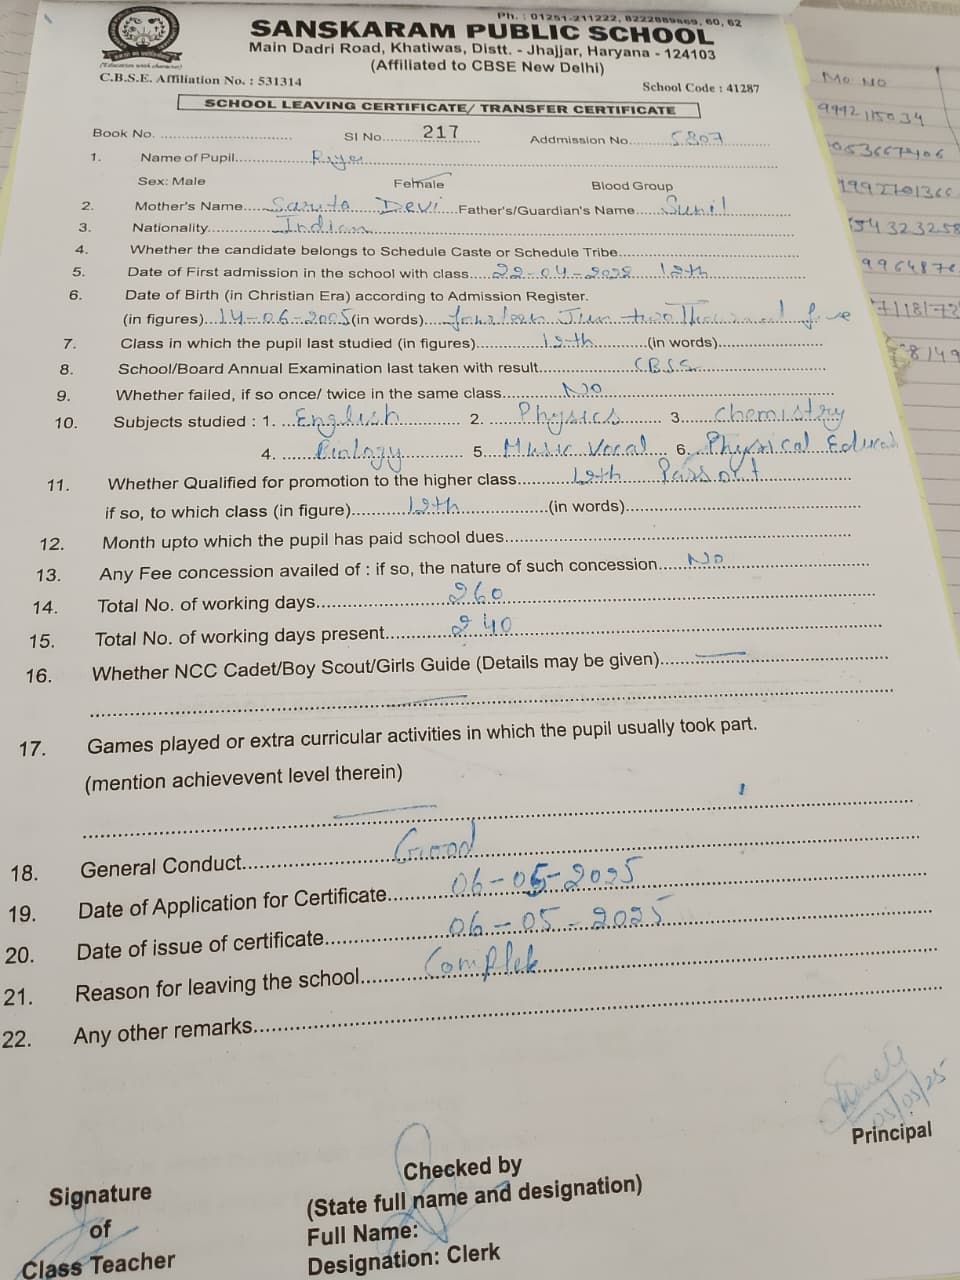 Ph. : 01251-211222, 8222889869, 60, 62
SANSKARAM PUBLIC SCHOOL
Main Dadri Road, Khatiwas, Distt. - Jhajjar, Haryana - 124103
(Affiliated to CBSE New Delhi)
C.B.S.E. Affiliation No. : 531314
School Code : 41287
SCHOOL LEAVING CERTIFICATE/ TRANSFER CERTIFICATE
Book No. .......... Sl No. 217 Addmission No. 5807
1. Name of Pupil.......... Riya
Sex: Male Female Blood Group
2. Mother's Name.... Sarita Devi ....Father's/Guardian's Name.... Sunil
3. Nationality.......... Indian
4. Whether the candidate belongs to Schedule Caste or Schedule Tribe..........
5. Date of First admission in the school with class.... 22-04-2022 12th
6. Date of Birth (in Christian Era) according to Admission Register.
(in figures)... 14-06-2005 (in words).... Fourteen Jun two Thousand five
7. Class in which the pupil last studied (in figures).......... 12th ..........(in words)..........
8. School/Board Annual Examination last taken with result.......... CBSE
9. Whether failed, if so once/ twice in the same class.......... No
10. Subjects studied : 1. English 2. Physics 3. Chemistry
4. Biology 5. Music Vocal 6. Physical Educat
11. Whether Qualified for promotion to the higher class.......... 12th Pass out
if so, to which class (in figure).......... 12th ..........(in words)..........
12. Month upto which the pupil has paid school dues..........
13. Any Fee concession availed of : if so, the nature of such concession...... No
14. Total No. of working days.......... 260
15. Total No. of working days present.......... 240
16. Whether NCC Cadet/Boy Scout/Girls Guide (Details may be given)..........
17. Games played or extra curricular activities in which the pupil usually took part.
(mention achievevent level therein)
18. General Conduct.......... Good
19. Date of Application for Certificate.......... 06-05-2025
20. Date of issue of certificate.......... 06-05-2025
21. Reason for leaving the school.......... Complete
22. Any other remarks..........
05/05/25
Principal
Checked by
(State full name and designation)
Full Name:
Designation: Clerk
Signature
of
Class Teacher
Mo No
9992115034